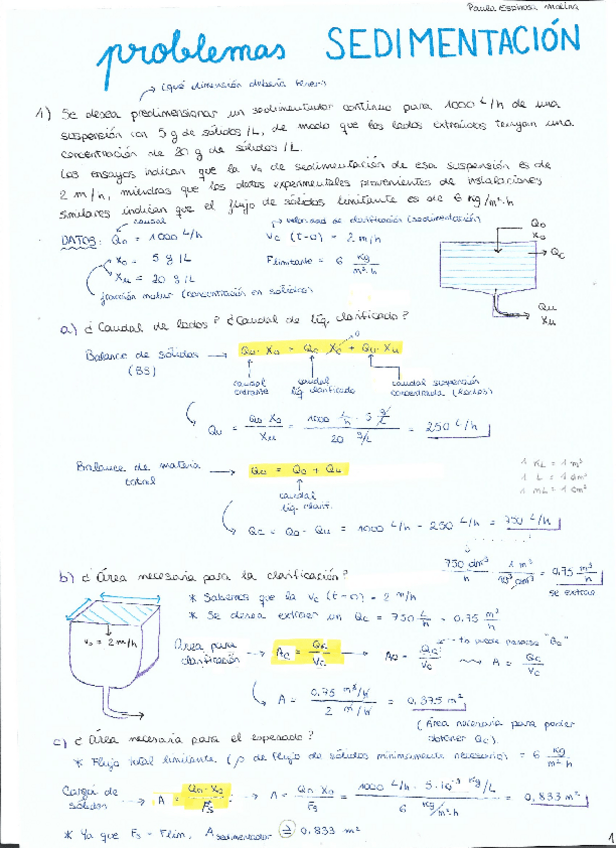 Paula Espinosa Molina
problemas SEDIMENTACIÓN
→ (qué dimensión debería tener)
1) Se desea predimensionar un sedimentador continuo para 1000 L/h de una
suspensión con 5 g de sólidos/L, de modo que los lodos extraídos tengan una
concentración de 20 g de sólidos/L.
Los ensayos indican que la v₀ de sedimentación de esa suspensión es de
2 m/h, mientras que los datos experimentales provenientes de instalaciones
similares indican que el flujo de sólidos limitante es de 6 Kg/m²·h
caudal
→ velocidad de clarificación (sedimentación)
DATOS: Q₀ = 1000 L/h
Vc (t=0) = 2 m/h
x₀ = 5 g/L
Flimitante = 6 Kg/m²·h
Xu = 20 g/L
(concentración en sólidos)
Q₀
X₀
Qc
Qu
Xu
a) ¿Caudal de lodos? ¿Caudal de líq. clarificado?
Balance de sólidos (BS) → Q₀·X₀ = Qc·Xc + Qu·Xu
0
caudal entrante
caudal líq. clarificado
caudal suspensión concentrada (lodos)
Qu = Q₀·X₀ / Xu = 1000 L/h · 5 g/L / 20 g/L = 250 L/h
Balance de materia total
caudal líq. clarif.
1 L = 1 dm³
Qc = Q₀ - Qu = 1000 L/h - 250 L/h = 750 L/h
750 dm³/h · 1 m³/10³ dm³ = 0,75 m³/h
se extrae
b) ¿Área necesaria para la clarificación?
* Sabemos que la Vc (t=0) = 2 m/h
* Se desea extraer un Qc = 750 L/h = 0,75 m³/h
v₀ = 2 m/h
Área para clarificación → Ac = Qc/Vc
A = Qc/Vc
A = 0,75 m³/h / 2 m/h = 0,375 m²
(Área necesaria para poder
obtener Qc).
c) ¿Área necesaria para el espesado?
* Flujo total limitante (flujo de sólidos mínimamente necesario) = 6 Kg/m²·h
Carga de sólidos → A = Q₀·X₀ / Fs → A = Q₀·X₀ / Fs = 1000 L/h · 5·10⁻³ Kg/L / 6 Kg/m²·h = 0,833 m²
* Ya que Fs = Flím, A sedimentador ≥ 0,833 m²
1